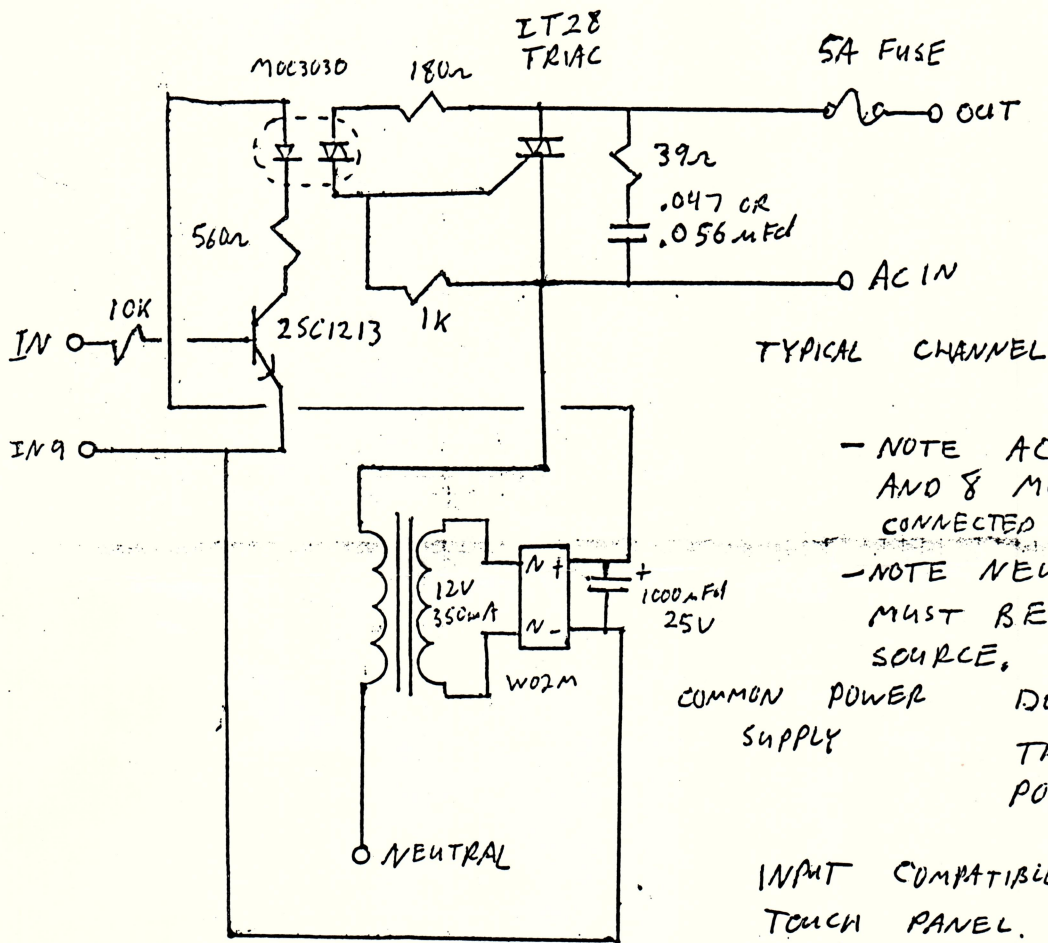 IT28
TRIAC
5A FUSE
MOC3030
180Ω
OUT
39Ω
.047 OR
.056 µFd
560Ω
AC IN
10K
1K
IN
2SC1213
TYPICAL CHANNEL
IN9
- NOTE AC
AND 8 M
CONNECTED
- NOTE NEU
MUST BE
SOURCE.
N +
N -
12V
350mA
+
1000µFd
25V
W02M
COMMON POWER
SUPPLY
PO
NEUTRAL
INPUT COMPATIBL
TOUCH PANEL.